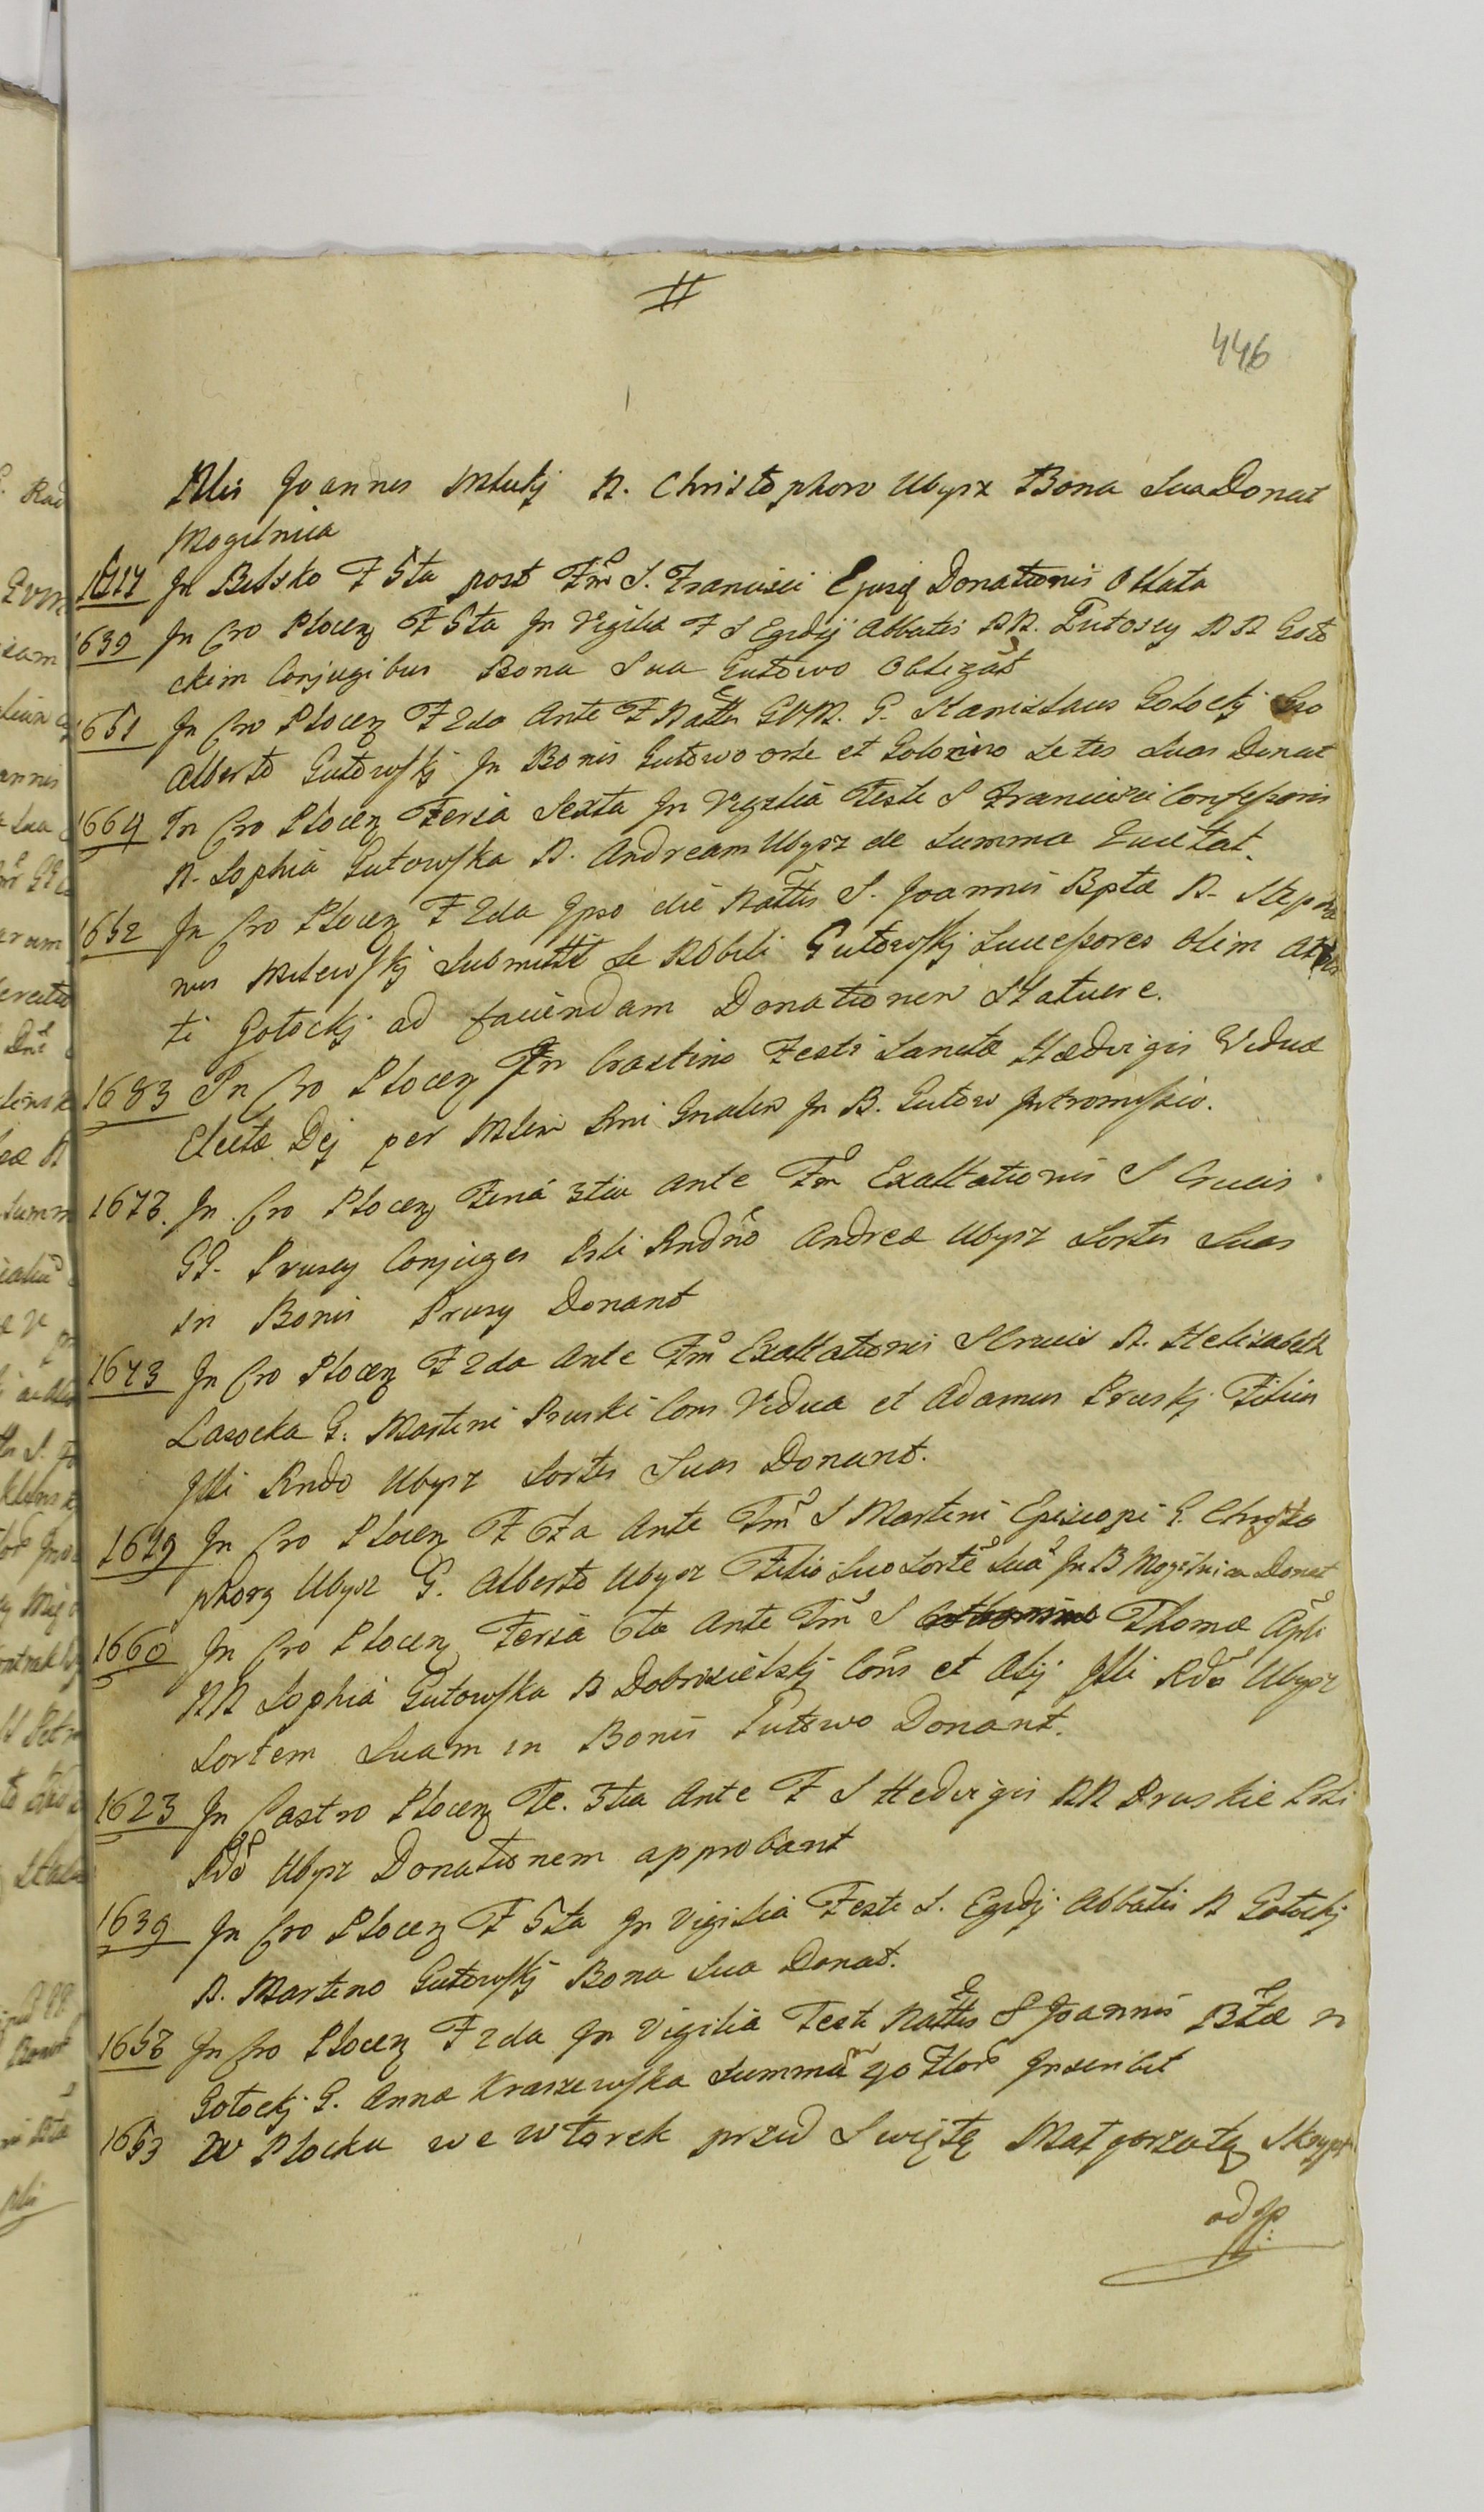 #
446
Nlis Joannes Mlickj N. Christophoro Ubysz Bona Sua Donat
Mogilnica
In Bielsko F 5ta post Fm S. Francisci Ejusq Donationis Oblata
1639 In Cro Plocen F 5ta In Vigilia F S Egidij Abbatis NN. Gutoscy NN Goto
ckim Conjugibus Bona Sua Gutowo Obligat
1651 In Cro Plocen F 2da Ante F Nattis GVM. G. Stanislaus Gotockj Gso
Alberto Gutowskj In Bonis Gutowo et Sortes Suas Donat
1664 In Cro Plocen Feria Sexta In Vigilia Festi S Francisci Confessoris
N. Sophia Gutowska N. Andream Ubysz de Summa Quietat.
1652 In Cro Plocen F 2da Ipso die Nattis S. Joannis Bptæ N. Stepha
nus Milewskj Submittit Se Nobili Gutowskj Successores olim Alber
ti Gotockj ad faciendam Donationem Statuere.
1683 In Cro Plocen In Crastino Festi Sanctæ Hædvigis Viduæ
Electæ Dej per Mlem Rni Gnalem In B. Gutow Intromissio.
1673. In Cro Plocen Feria 3tia ante Fm Exaltationis S Crucis
GG. Pruscy Conjuges Isti Rndno Andreæ Ubysz Sortes Suas
in Bonis Prusy Donant
1673 In Cro Plocen F 2da Ante Fm Exaltationis S Crucis N. Helizabeth
Lasocka G. Martini Pruski Cons Vidua et Adamus Pruskj Filius
Isti Rndo Ubysz Sortes Suas Donant.
1619 In Cro Plocen F 6ta Ante Fm S Martini Episcopi G. Chrysto
phorg Ubysz G. Alberto Ubysz Filio Suo Sorte Sua In B Mogilnica Donat
1660 In Cro Plocen Feria 6ta Ante Fm S Thomæ Apli
NN Sophia Gutowska N Dobrzielskj Cons et Alij Isti Rdo Ubysz
Sortem Suam in Bonis Gutowo Donant.
1623 In Castro Plocen Fe. 3tia Ante F S Hedvigis NN Pruskie Isti
Rdo Ubysz Donationem approbant
1639 In Cro Plocen F 5ta In Vigilia Festi S. Egidij Abbatis N Gotockj
N. Martino Gutowskj Bona Sua Donat.
1658 In Cro Plocen F 2da In Vigilia Festi Nattis S Joannis Btæ N
Gotockj G. Anna Kraszewska Summam 90 Flor Inscribit
1653 W Plocku we Wtorek przed Swiętą Małgorzatą Skrypt
od Jp: